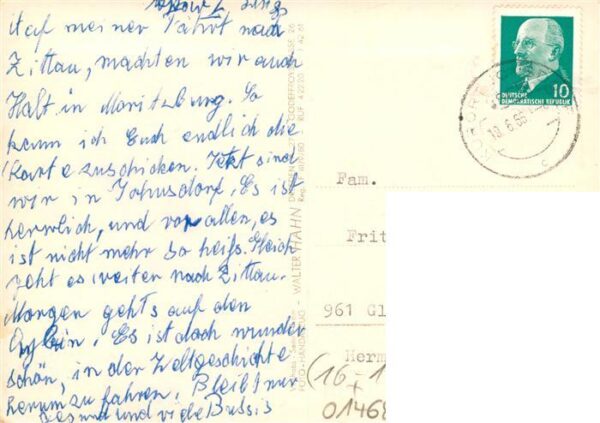 Auf meiner Fahrt nach
Zittau, machten wir auch
Halt in Moritzburg. So
kann ich Euch endlich die
Karte zuschicken. Jetzt sind
wir in Jonsdorf. Es ist
herrlich, und vor allen, es
ist nicht mehr so heiß. Gleich
geht es weiter nach Zittau.
Morgen gehts auf den
Oybin. Es ist doch wunder
schön, in der Weltgeschichte
herum zu fahren. Bleibt nur
gesund und viele Bussis
WALTER HAHN
10
DEUTSCHE
DEMOKRATISCHE REPUBLIK
Fam.
Frit
961 Gl
Herm
(16-1
01468